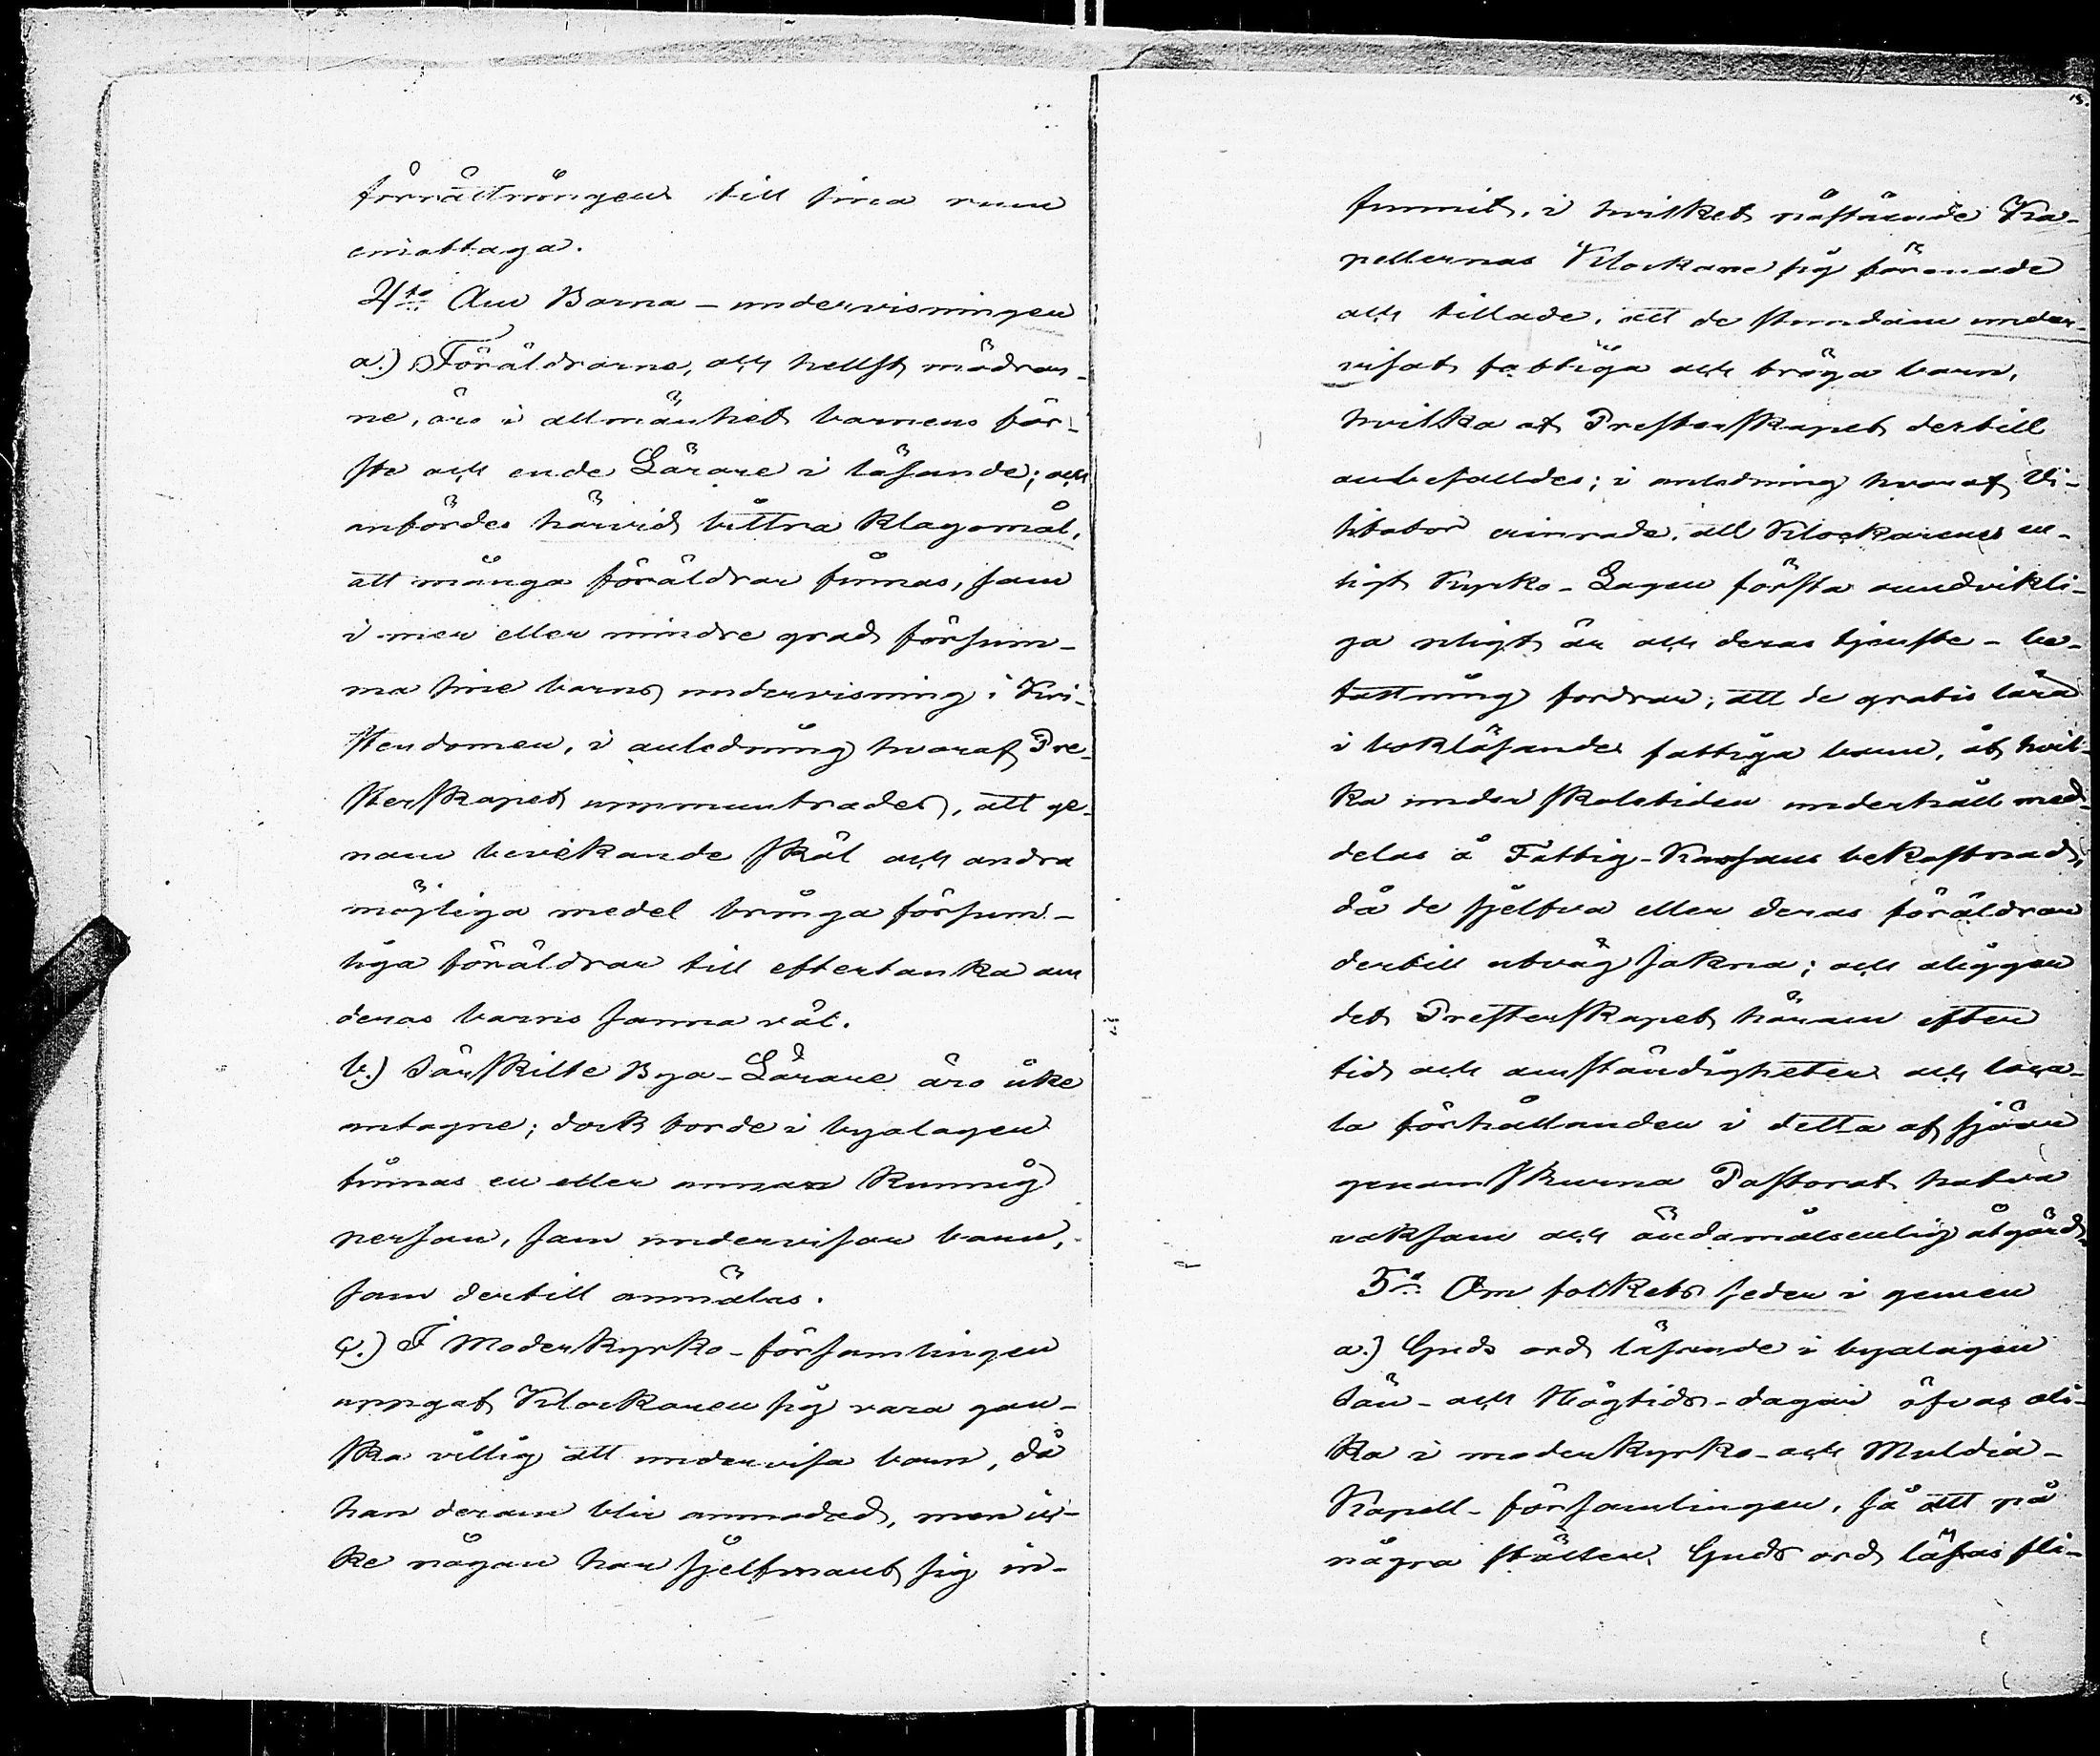 förrättningen till sina rum
emottaga.
4to Om Barna-undervisningen
a.) Föräldrarne, och hellst mödrar-
ne, äro i allmänhet barnens för-
ste och ende Lärare i läsande; och
anfördes härvid bittra klagomål,
att många föräldrar finnas, som
i mer eller mindre grad försum-
ma sine barns undervisning i Kri-
stendomen, i anledning hvaraf Pre-
sterskapet uppmuntrades, att ge-
nom bevekande skäl och andra
möjliga medel bringa försum-
liga föräldrar till eftertanka om
deras barns sanna väl.
b.) Särskilte Bya-Lärare äro icke
antagne; dock torde i byalagen
finnas en eller annan kunnig
person, som undervisar barn,
som dertill anmälas.
c.) I Moderkyrko-församlingen
uppgaf Klockaren sig vara gan-
ska villig att undervisa barn, då
han derom blir anmodad, men ic-
ke någon har sjelfmant sig in-
15.
funnit, i hvilket nästående Ka-
pellernas Klockare sig förenade
och tillade, att de stundom under-
visat fattiga och tröga barn,
hvilka af Presterskapet dertill
anbefalldes; i anledning hvaraf Vi-
sitator erinrade, att Klockarenes en-
ligt Kyrko-Lagen första oundvikli-
ga pligt är och deras tjenste-be-
fattning fordrar, att de gratis lära
i bokläsande fattiga barn, åt hvil-
ka under skoletiden underhåll med-
delas å Fattig-Kassans bekostnad,
då de sjelfva eller deras föräldrar
dertill utväg sakna; och åligger
det Presterskapet härom efter
tid och omständigheter och loca-
la förhållanden i detta af sjöar
genomskurna Pastorat hafva
vaksam och ändamålsenlig åtgärd.
5to Om folkets seder i gemen
a.) Guds ord läsande i byalagen
Sön- och Högtids-dagar öfvas oli-
ka i moderkyrko- och Muldia-
Kapell-församlingen, så att på
några ställen Guds ord läsas fli-